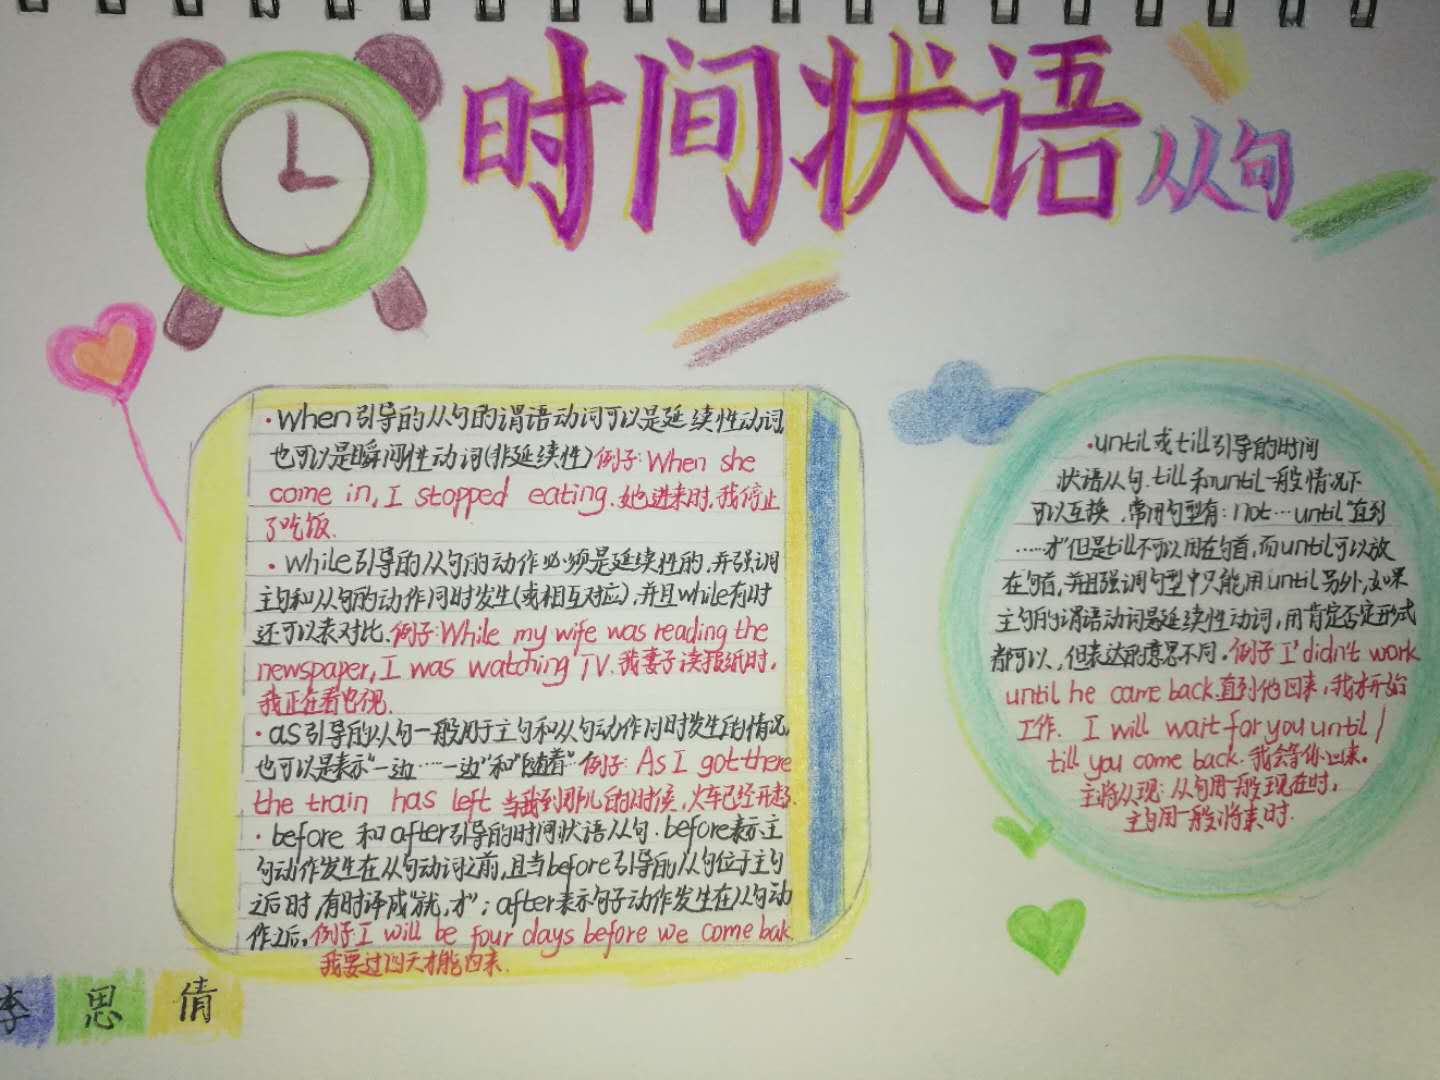 时间状语从句
·when引导的从句的谓语动词可以是延续性动词
也可以是瞬间性动词(非延续性)例子:When she
come in, I stopped eating.她进来时,我停止
了吃饭.
·while引导的从句的动作必须是延续性的,并强调
主句和从句的动作同时发生(或相互对应),并且while有时
还可以表对比.例子:While my wife was reading the
newspaper, I was watching TV.我妻子读报纸时,
我正在看电视.
·as引导的从句一般用于主句和从句动作同时发生的情况,
也可以是表示“一边……一边”和“随着”例子:As I got there
the train has left 当我到那儿的时候,火车已经开走.
·before 和after引导的时间状语从句.before表示主
句动作发生在从句动词之前,且当before引导的从句位于主句
之后时,有时译成“就,才”;after表示句子动作发生在从句动
作之后。例子:I will be four days before we come bak.
我要过四天才能回来.
·until或till引导的时间
状语从句.till和until一般情况下
可以互换.常用句型有:not…until“直到
……才”但是till不可以用在句首,而until可以放
在句首,并且强调句型中只能用until另外,如果
主句的谓语动词是延续性动词,用肯定否定形式
都可以,但表达的意思不同。例子 I'didn't work
until he came back.直到他回来,我才开始
工作. I will wait for you until /
till you come back.我会等你回来。
主将从现:从句用一般现在时,
主句用一般将来时.
李思倩